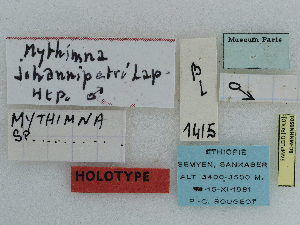 Mythimna
johannipetri Lap-
Htp. ♂
MYTHIMNA
SP.
HOLOTYPE
B
L
1415
Museum Paris
♀
ETHIOPIE
SEMYEN, SANKABER
ALT 3400-3500 M.
15-XI-1981
P.-C. ROUGEOT